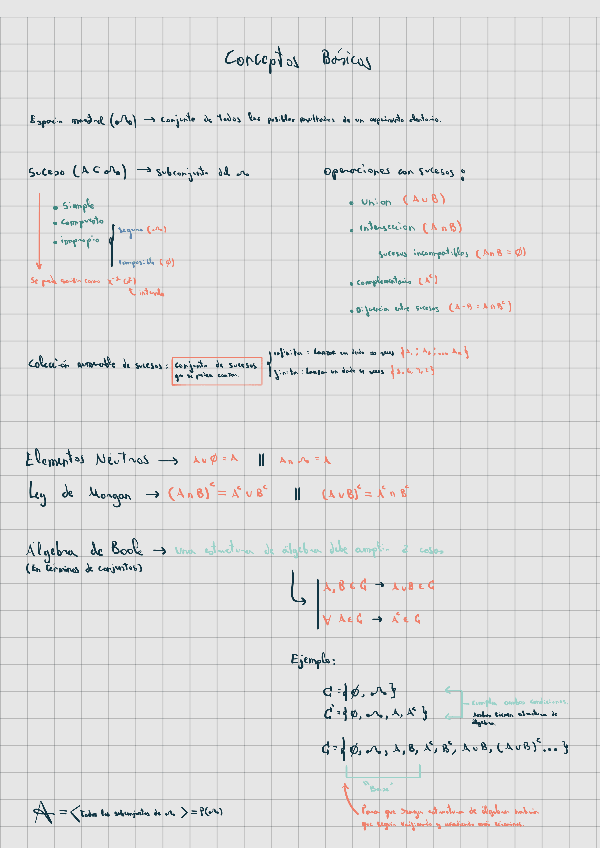 Conceptos Básicos
Espacio muestral (Ω) → Conjunto de todos los posibles resultados de un experimento aleatorio.
Suceso (A ⊂ Ω) → subconjunto del Ω
• Simple
• Compuesto
• impropio
Seguro (Ω)
imposible (∅)
Se puede escribir como X⁻¹ (
Operaciones con sucesos:
• Union (A ∪ B)
• Interseccion (A ∩ B)
sucesos incompatibles (A ∩ B = ∅)
• Complementario (Aᶜ)
• Diferencia entre sucesos (A-B = A ∩ Bᶜ)
Colección numerable de sucesos: conjunto de sucesos
que se pueden contar.
infinita: Lanzar un dado ∞ veces
finita: Lanzar un dado 4 veces
Elementos Neutros → A ∪ ∅ = A || A ∩ Ω = A
Ley de Morgan → (A ∩ B)ᶜ = Aᶜ ∪ Bᶜ || (A ∪ B)ᶜ = Aᶜ ∩ Bᶜ
Álgebra de Boole → Una estructura de álgebra debe cumplir 2 cosas
(En terminos de conjuntos)
A, B ∈ G → A ∪ B ∈ G
∀ A ∈ G → Aᶜ ∈ G
Ejemplo:
G = {∅, Ω}
G = {∅, Ω, A, Aᶜ}
cumplen ambas condiciones.
Ambas tienen estructura de
álgebra
G = {∅, Ω, A, B, Aᶜ, Bᶜ, A ∪ B, (A ∪ B)ᶜ ... }
"Base"
Para que tenga estructura de álgebra
que seguir uniendo y
A = < todos los subconjuntos de Ω > = P(Ω)